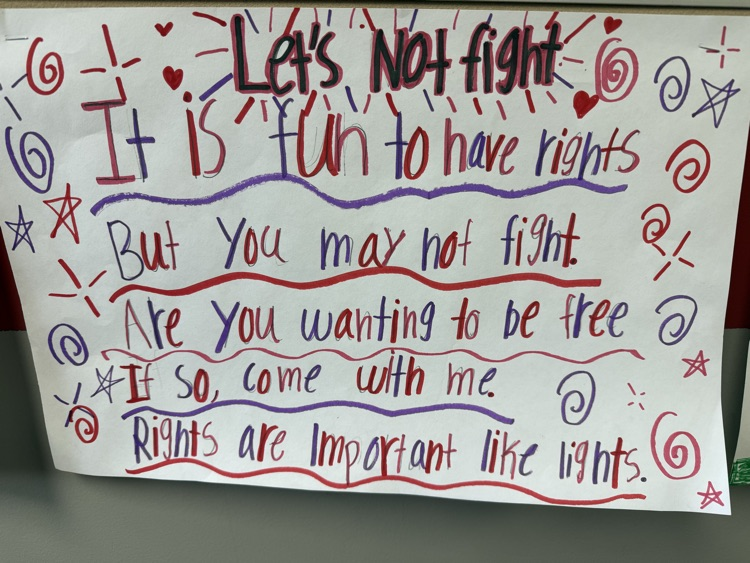 Let's Not fight
It is fun to have rights
But you may not fight.
Are you wanting to be free
If so, come with me.
Rights are Important like lights.